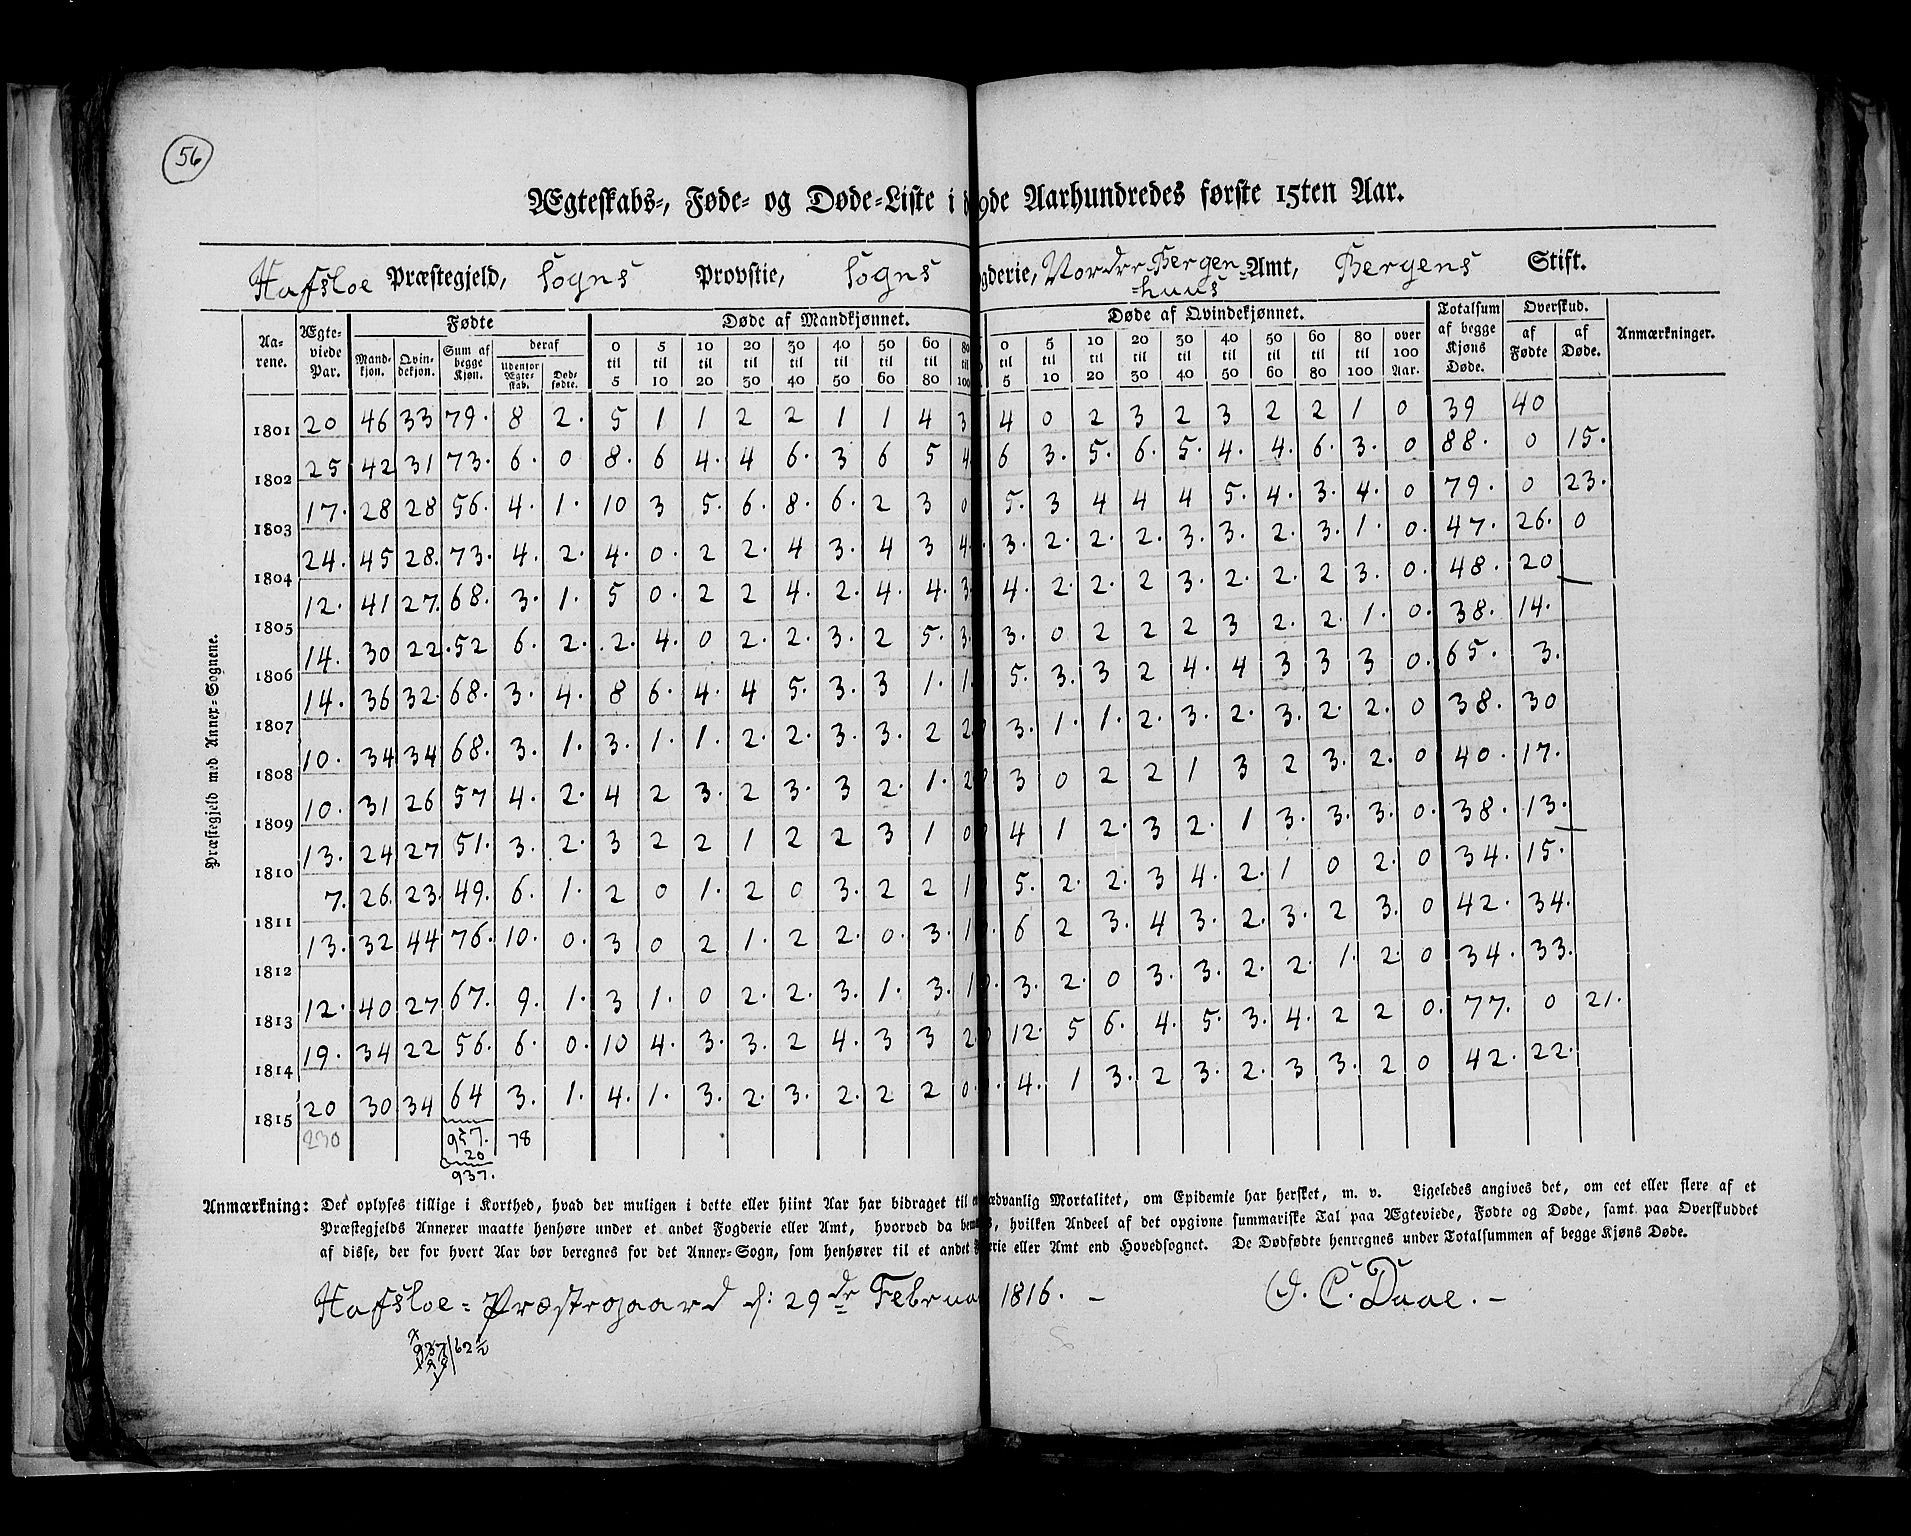 56
Ægteskabs-, Føde- og Døde-Liste i 9de Aarhundredes første 15ten Aar.
Hafsloe Præstegjeld, Sogns Provstie, Sogns gderie, Nordre Bergen-huus Amt, Bergens Stift.
Præstegjeld med Annex-Sognene.
Aarene. Ægteviede Par. Fødte Døde af Mandkjønnet. Døde af Qvindekjønnet. Totalsum af begge Kjøns Døde. Overskud. Anmærkninger.
Mandkjøn. Qvindekjøn. Sum af begge Kjøn. deraf Udenfor Ægteskab. Dødfødte. 0 til 5 5 til 10 10 til 20 20 til 30 30 til 40 40 til 50 50 til 60 60 til 80 80 til 100 0 til 5 5 til 10 10 til 20 20 til 30 30 til 40 40 til 50 50 til 60 60 til 80 80 til 100 over 100 Aar. af Fødte af Døde.
1801 20 46 33 79. 8 2. 5 1 1 2 2 1 1 4 3 4 0 2 3 2 3 2 2 1 0 39 40
1802 25 42 31 73. 6. 0 8. 6 4. 4 6. 3 6 5 4. 6 3. 5. 6. 5. 4. 4. 6. 3. 0 88. 0 15.
1803 17. 28 28 56. 4. 1. 10 3 5. 6. 8. 6. 2 3 0 5. 3 4 4 4 5. 4. 3. 4. 0 79. 0 23.
1804 24. 45 28. 73. 4. 2. 4. 0. 2 2. 4 3. 4 3 4. 3. 2. 2. 2. 3. 3. 2. 3. 1. 0. 47. 26. 0
1805 12. 41 27. 68. 3. 1. 5 0. 2 2 4. 2. 4. 4. 3. 4. 2. 2. 2 3. 2. 2. 2 3. 0. 48. 20
1806 14. 30 22. 52 6. 2. 2. 4. 0 2. 2. 3. 2 5. 3. 3. 0 2 2 2 3 2. 2. 1. 0. 38. 14.
1807 14. 36 32. 68. 3. 4. 8 6. 4. 4 5. 3. 3 1. 1. 5. 3. 3 2 4. 4 3 3 3 0. 65. 3.
1808 10. 34 34 68. 3. 1. 3. 1. 1. 2. 2. 3. 3. 2 2. 3. 1. 1. 2. 3. 2. 3. 2. 2. 0 38. 30
1809 10. 31 26 57 4. 2. 4 2 3. 2 3. 3 2. 1. 2 3 0 2 2 1 3 2 3. 2. 0 40. 17.
1810 13. 24 27 51. 3. 2. 3 2 2 1 2 2 3 1 0 4 1 2. 3 2. 1 3. 3. 3. 0. 38. 13.
1811 7. 26. 23. 49. 6. 1. 2 0 1. 2 0 3. 2 2 1 5. 2. 2. 3 4. 2. 1 0 2. 0 34. 15.
1812 13. 32 44 76. 10. 0. 3 0 2 1. 2 2. 0. 3. 1 6 2 3. 4 3. 2. 3. 2 3. 0 42. 34.
1813 12. 40 27 67. 9. 1. 3 1. 0 2. 2. 3. 1. 3. 1 3. 2. 0 3. 3. 2. 2. 1. 2. 0 34. 33.
1814 19. 34 22 56. 6. 0. 10 4. 3. 3. 2 4. 3 3 2. 12. 5 6. 4. 5. 3. 4. 2 2 0. 77. 0 21.
1815 20 30 34 64 3. 1. 4. 1. 3. 2. 3. 2. 2 2 0. 4. 1 3. 2 3. 2. 3 3. 2 0 42. 22.
230 957. 78
20
937.
Anmærkning: Det oplyses tillige i Korthed, hvad der muligen i dette eller hiint Aar har bidraget til ædvanlig Mortalitet, om Epidemie har hersket, m. v. Ligeledes angives det, om eet eller flere af et
Præstegjelds Annexer maatte henhøre under et andet Fogderie eller Amt, hvorved da hvilken Andeel af det opgivne summariske Tal paa Ægteviede, Fødte og Døde, samt paa Overskuddet
af disse, der for hvert Aar bør beregnes for det Annex-Sogn, som henhører til et andet erie eller Amt end Hovedsognet. De Dødfødte henregnes under Totalsummen af begge Kjøns Døde.
Hafsloe-Præstegaard d: 29de Februa 1816. – J. C. Daae. –
937/62½